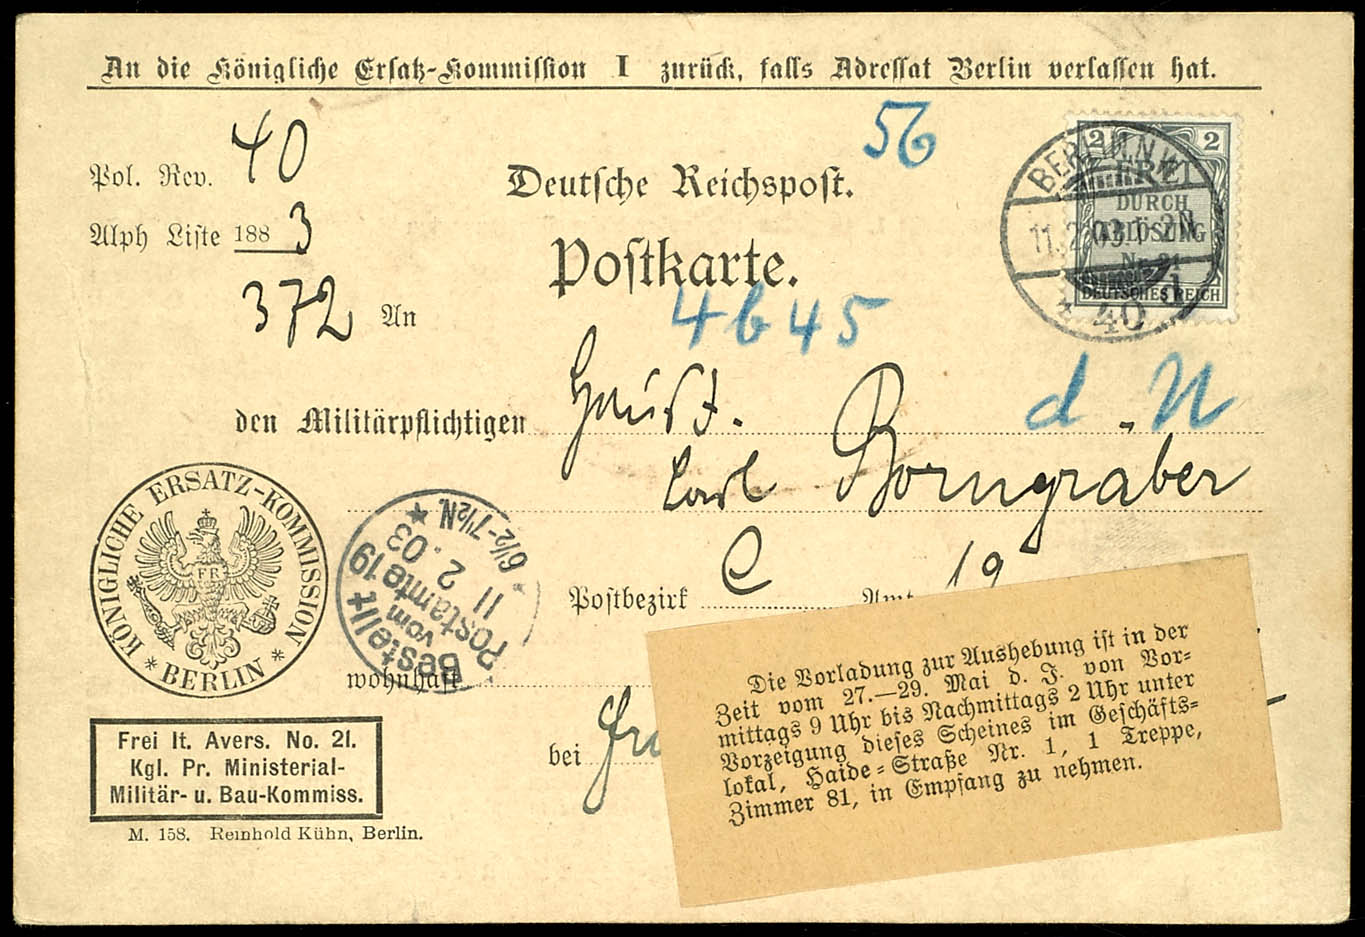 An die Königliche Ersatz-Kommission I zurück, falls Adressat Berlin verlassen hat.
56
Pol. Rev. 40
Alph Liste 1883
372
Deutsche Reichspost.
Postkarte.
2 2
FREI
DURCH
ABLÖSUNG
Nr. 21
DEUTSCHES REICH
BERLIN N.W.
11.2.03.1-2N.
* 40 d
4 b 45
An
den Militärpflichtigen
d N
Carl Borngräber
KÖNIGLICHE ERSATZ-KOMMISSION
* BERLIN *
FR
Bestellt
vom
Postamte 19
11 2.03
6½-7½N.
Postbezirk C Amt 19
wohnhaft
bei
Die Vorladung zur Aushebung ist in der
Zeit vom 27.—29. Mai d. J. von Vor-
mittags 9 Uhr bis Nachmittags 2 Uhr unter
Vorzeigung dieses Scheines im Geschäfts-
lokal, Haide-Straße Nr. 1, 1 Treppe,
Zimmer 81, in Empfang zu nehmen.
Frei lt. Avers. No. 21.
Kgl. Pr. Ministerial-
Militär- u. Bau-Kommiss.
M. 158. Reinhold Kühn, Berlin.